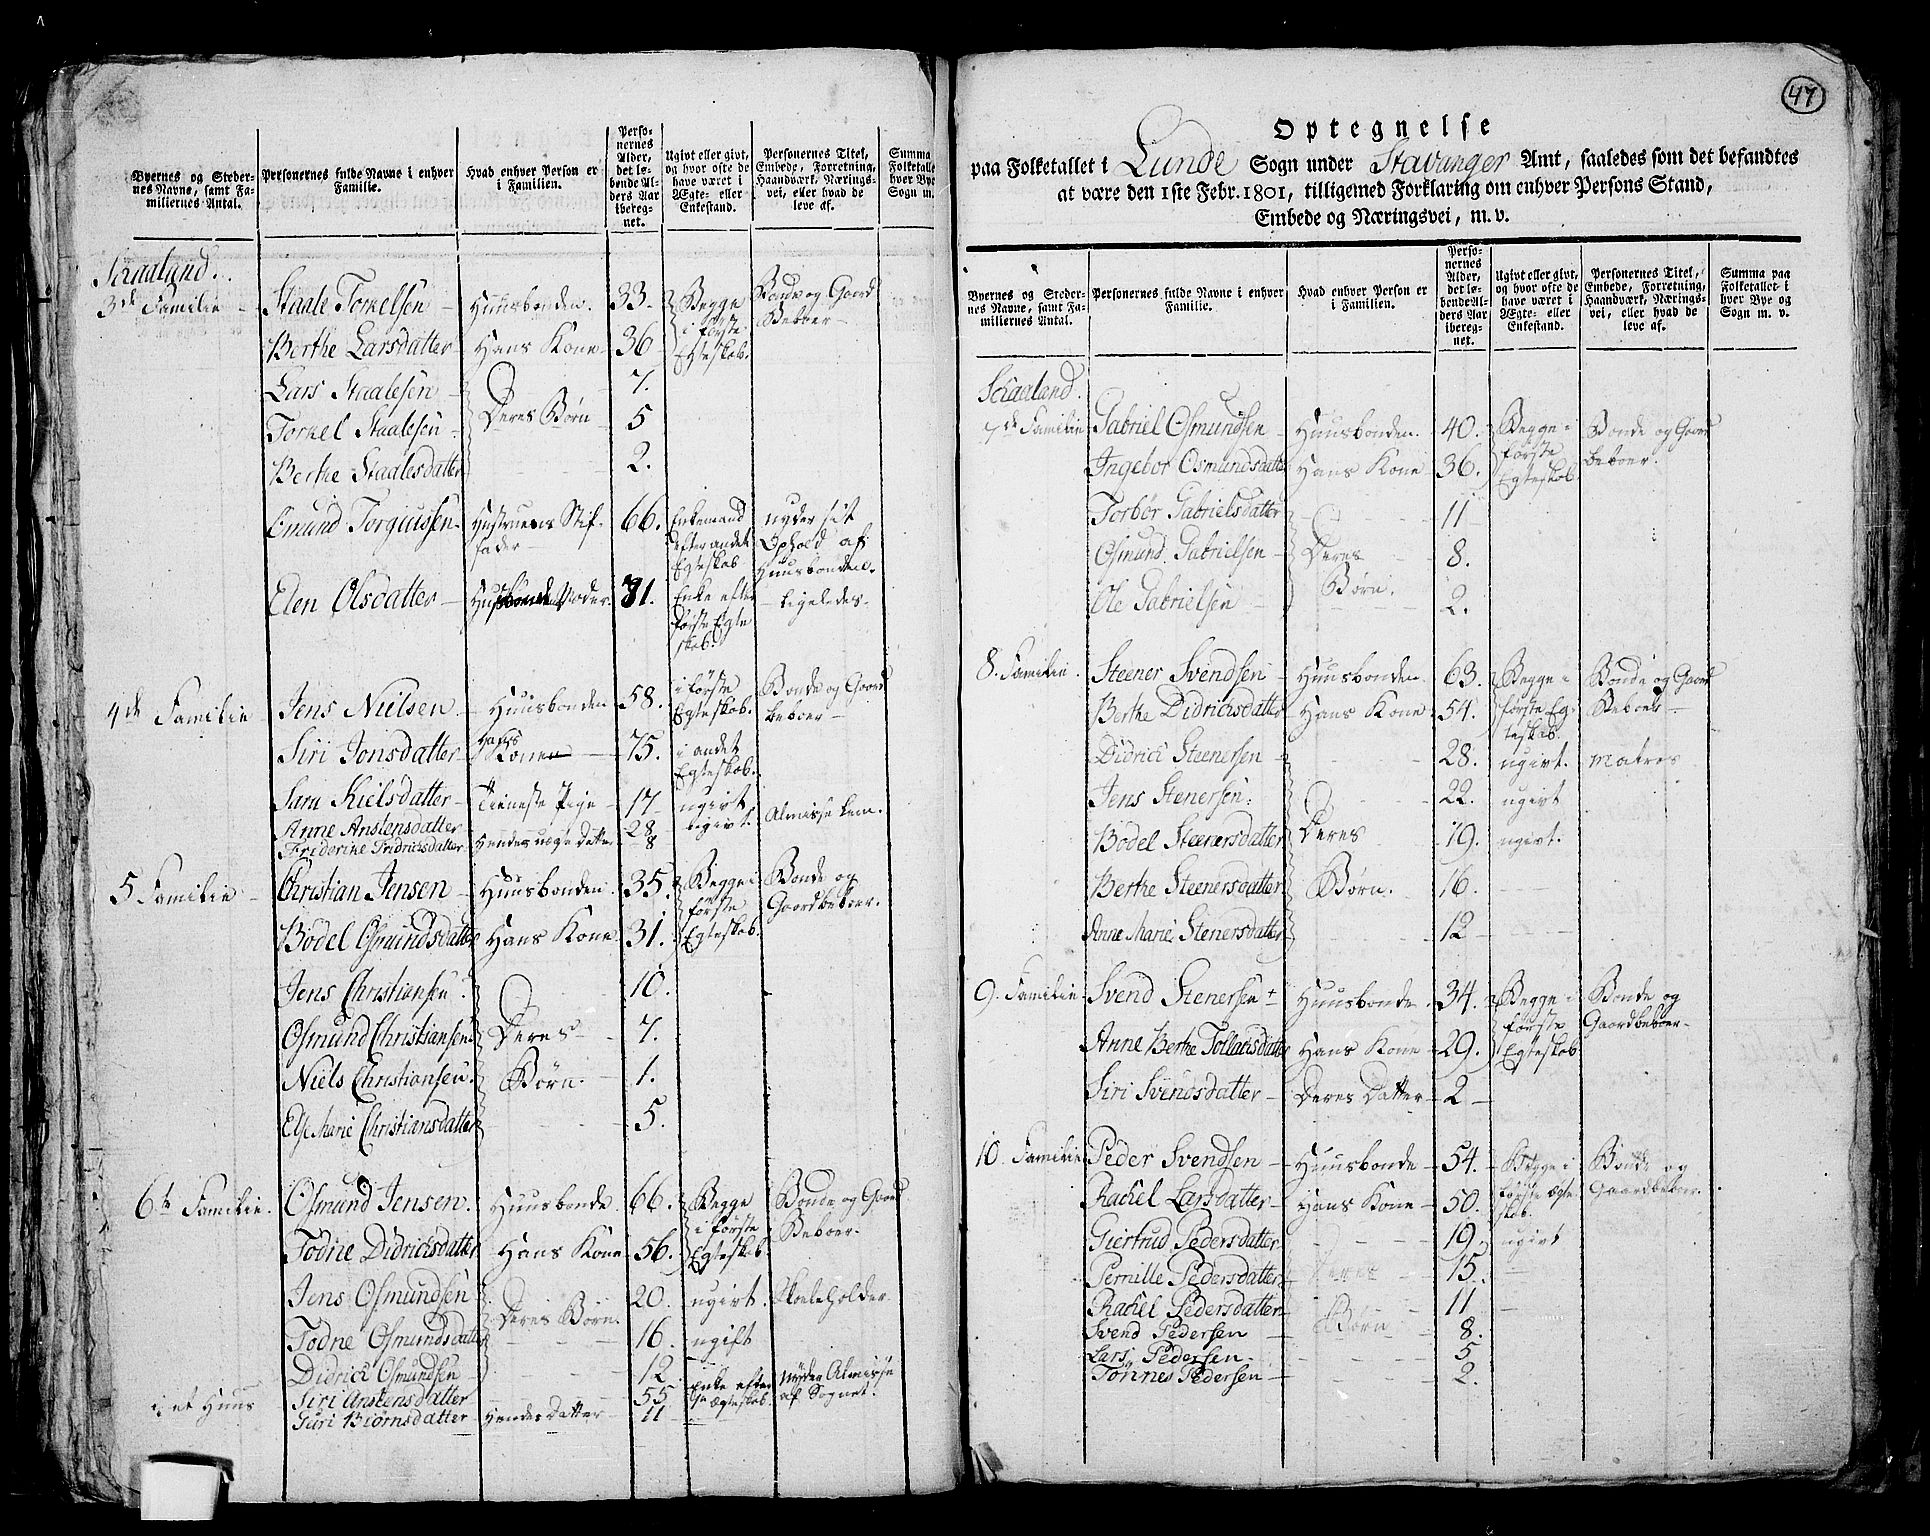 Byernes og Steder-
nes Navne, samt Fa-
miliernes Antal.
Personernes fulde Navne i enhver
Familie.
Hvad enhver Person er
i Familien.
Perso-
nernes
Alder,
det lø-
bende Al-
ders Aar
ibereg-
net.
Ugivt eller givt,
og hvor ofte de
have været i
Ægte- eller
Enkestand.
Personernes Titel,
Embede, Forretning,
Haandværk, Nærings-
vei, eler hvad de
leve af.
Summa
Folketalle
hver Bye
Sogn m.
Skaaland.
3de Familie - Staale Torkelsen - Huusbonden. 33. Begge i første Egteskab. Bonde og Gaard Beboer -
Berthe Larsdatter - Hans Kone 36
Lars Staalesen - 7.
Torkel Staalesen - Deres Børn 5
Berthe Staalesdatter 2.
Emund Torgiussen - Hustruens Stif-fader - 66. Enkemand efter andet Egteskab nyder sit Ophold af Huusbonden.
Elen Olsdatter - Moder. 81. Enke efter første Egte skab. - ligeledes -
4de Familie Jens Nielsen Huusbonden 58. i første Egteskab. Bonde og Gaard beboer -
Siri Jonsdatter - Hans Kone 75. i andet Egteskab.
Sara Kielsdatter - Tieneste Pige - 17 ugivt
Anne Anstensdatter 28 ugivt. Almisse Lem.
Friderine Fridrichsdatter Hendes uægte Datter 8
5 Familie - Christian Jensen - Huusbonden. 35. Begge i første Egteskab. Bonde og Gaardbeboer.
Bodel Osmundsdatter Hans Kone 31.
Jens Christiansen 10.
Osmund Christiansen Deres 7.
Niels Christiansen. Børn. 1.
Else Marie Christiansdatter 5.
6te Familie. Osmund Jensen. Huusbonde. 66. Begge i første Egteskab Bonde og Gaard Beboer.
Todne Didrichsdatter Hans Kone 56.
Jens Osmundsen 20. ugivt. Skoleholder
Todne Osmundsdatter Deres Børn. 16. ugift
Didrich Osmundsen 12
i et Huus Siri Anstensdatter 55 Enke efter 1ste Ægteskab. Nyder Almisse af Sognet.
Guri Biørnsdatter Hendes Datter 11
47
Optegnelse
paa Folketallet i Lunde Sogn under Stavanger Amt, saaledes som det befandtes
at være den 1ste Febr. 1801, tilligemed Forklaring om enhver Persons Stand,
Embede og Næringsvei, m. v.
Byernes og Steder-
nes Navne, samt Fa-
miliernes Antal.
Personernes fulde Navne i enhver
Familie.
Hvad enhver Person er
i Familien.
Perso-
nernes
Alder,
det lø-
bende Al-
ders Aar
ibereg-
net.
Ugivt eller givt,
og hvor ofte de
have været i
Ægte- eller
Enkestand.
Personernes Titel,
Embede, Forretning,
Haandværk, Nærings-
vei, eller hvad de
leve af.
Summa paa
Folketallet i
hver Bye og
Sogn m. v.
Skaaland.
7de Familie Gabriel Osmundsen - Huusbonden. 40. Begge i første Egteskab. Bonde og Gaard beboer.
Ingebor Osmundsdatter Hans Kone 36.
Torbor Gabrielsdatter 11
Osmund Gabrielsen - Deres 8.
Ole Gabrielsen - Børn. 2.
8. Familie. Steener Svendsen - Huusbonden 63. Begge i første Eg-teskab. Bonde og Gaard Beboer -
Berthe Didrichsdatter Hans Kone 54.
Didrich Steenersen - 28. ugivt. Matros
Jens Stenersen. 22. ugivt
Bodel Steenersdatter Deres 19. ugivt.
Berthe Steenersdatter Børn. 16.
Anne Marie Stenersdatter 12
9. Familie. Svend Stenersen + Huusbonde. 34. Begge i første Egteskab Bonde og Gaardbeboer.
Anne Berthe Tollachsdatter Hans Kone 29.
Siri Svendsdatter - Deres Datter - 2 -
10. Familie Peder Svendsen - Huusbonde - 54. Begge i første Ægte skab. Bonde og Gaardbeboer.
Rachel Larsdatter - Hans Kone - 50.
Giertrud Pedersdatter 19. ugivt
Pernille Pedersdatter Deres 15.
Rachel Pedersdatter Børn 11
Svend Pedersen 8.
Lars Pedersen - 5
Tønnes Pedersen - 2.